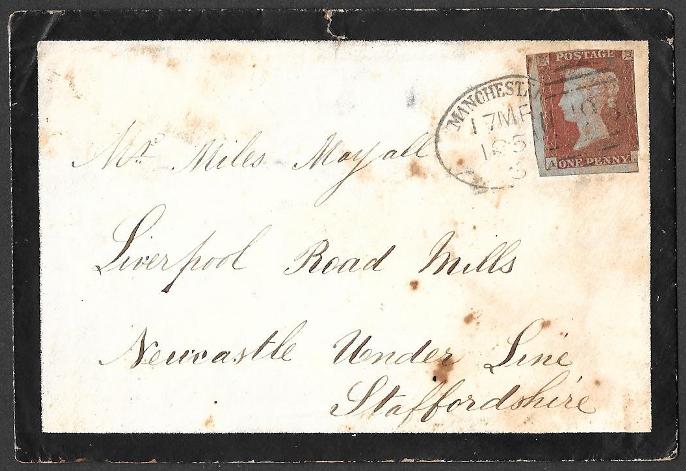 POSTAGE
ONE PENNY
MANCHEST
17 MR
185
Mr. Miles Mayall
Liverpool Road Mills
Newcastle Under Line
Staffordshire